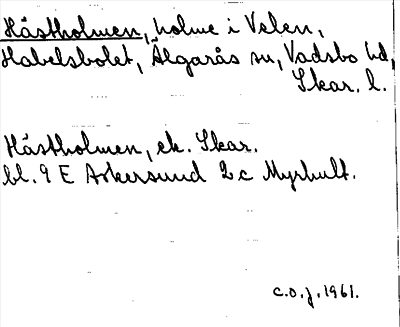 Hästholmen, holme i Velen,
Habelsbolet, Älgarås sn, Vadsbo hd,
Skar. l.
Hästholmen, ek. Skar.
bl. 9 E Askersund 2c Myrhult.
c.o.j. 1961.